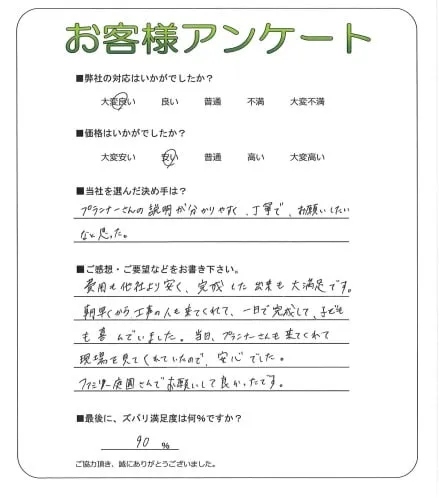 お客様アンケート
■弊社の対応はいかがでしたか？
大変良い 良い 普通 不満 大変不満
■価格はいかがでしたか？
大変安い 安い 普通 高い 大変高い
■当社を選んだ決め手は？
プランナーさんの説明が分かりやすく、丁寧で、お願いしたい
なと思った。
■ご感想・ご要望などをお書き下さい。
費用も他社より安く、完成した出来も大満足です。
朝早くから工事の人も来てくれて、一日で完成して、子ども
も喜んでいました。当日、プランナーさんも来てくれて
現場を見てくれていたので、安心でした。
ファミリー庭園さんでお願いして良かったです。
■最後に、ズバリ満足度は何%ですか？
90 %
ご協力頂き、誠にありがとうございました。